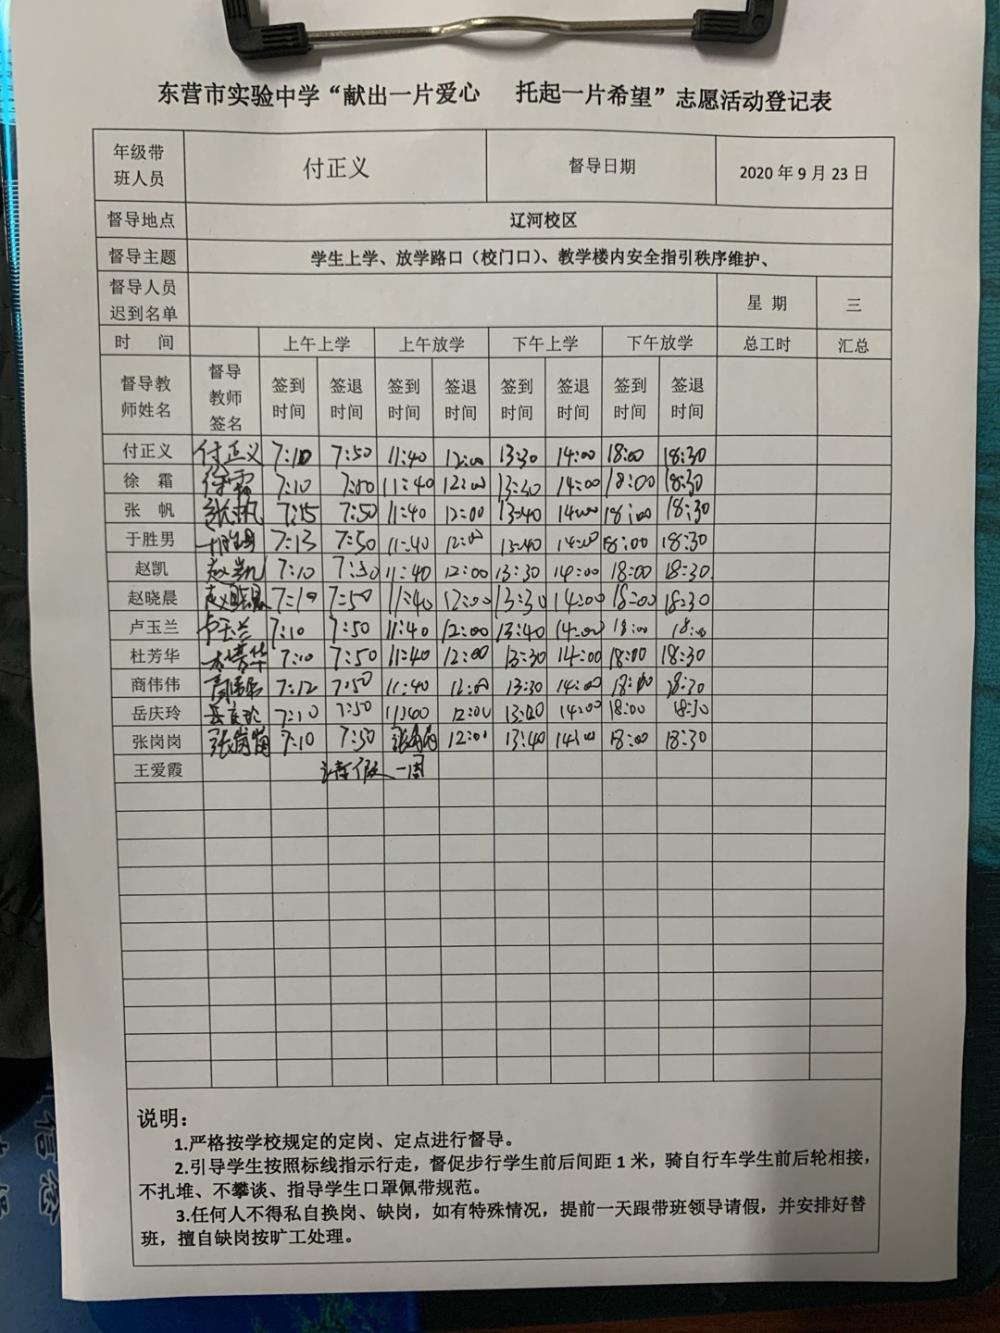 东营市实验中学“献出一片爱心 托起一片希望”志愿活动登记表
年级带班人员 付正义 督导日期 2020 年 9 月 23 日
督导地点 辽河校区
督导主题 学生上学、放学路口（校门口）、教学楼内安全指引秩序维护、
督导人员迟到名单 星 期 三
时 间 上午上学 上午放学 下午上学 下午放学 总工时 汇总
督导教师姓名 督导教师签名 签到时间 签退时间 签到时间 签退时间 签到时间 签退时间 签到时间 签退时间
付正义 付正义 7:10 7:50 11:40 12:00 13:30 14:00 18:00 18:30
徐 霜 徐霜 7:10 7:50 11:40 12:00 13:30 14:00 18:00 18:30
张 帆 张帆 7:15 7:50 11:40 12:00 13:40 14:00 18:00 18:30
于胜男 于胜男 7:13 7:50 11:40 12:00 13:40 14:00 18:00 18:30
赵凯 赵凯 7:10 7:50 11:40 12:00 13:30 14:00 18:00 18:30
赵晓晨 赵晓晨 7:10 7:50 11:40 12:00 13:30 14:00 18:00 18:30
卢玉兰 卢玉兰 7:10 7:50 11:40 12:00 13:40 14:00 18:00 18:00
杜芳华 杜芳华 7:10 7:50 11:40 12:00 13:30 14:00 18:00 18:30
商伟伟 商伟伟 7:12 7:50 11:40 12:00 13:30 14:00 18:00 18:30
岳庆玲 岳庆玲 7:10 7:50 11:40 12:00 14:00 18:00 18:30
张岗岗 张岗岗 7:10 7:50 张岗岗 12:00 13:40 14:00 18:00 18:30
王爱霞 请假一周
说明：
1.严格按学校规定的定岗、定点进行督导。
2.引导学生按照标线指示行走，督促步行学生前后间距 1 米，骑自行车学生前后轮相接，
不扎堆、不攀谈、指导学生口罩佩带规范。
3.任何人不得私自换岗、缺岗，如有特殊情况，提前一天跟带班领导请假，并安排好替
班，擅自缺岗按旷工处理。